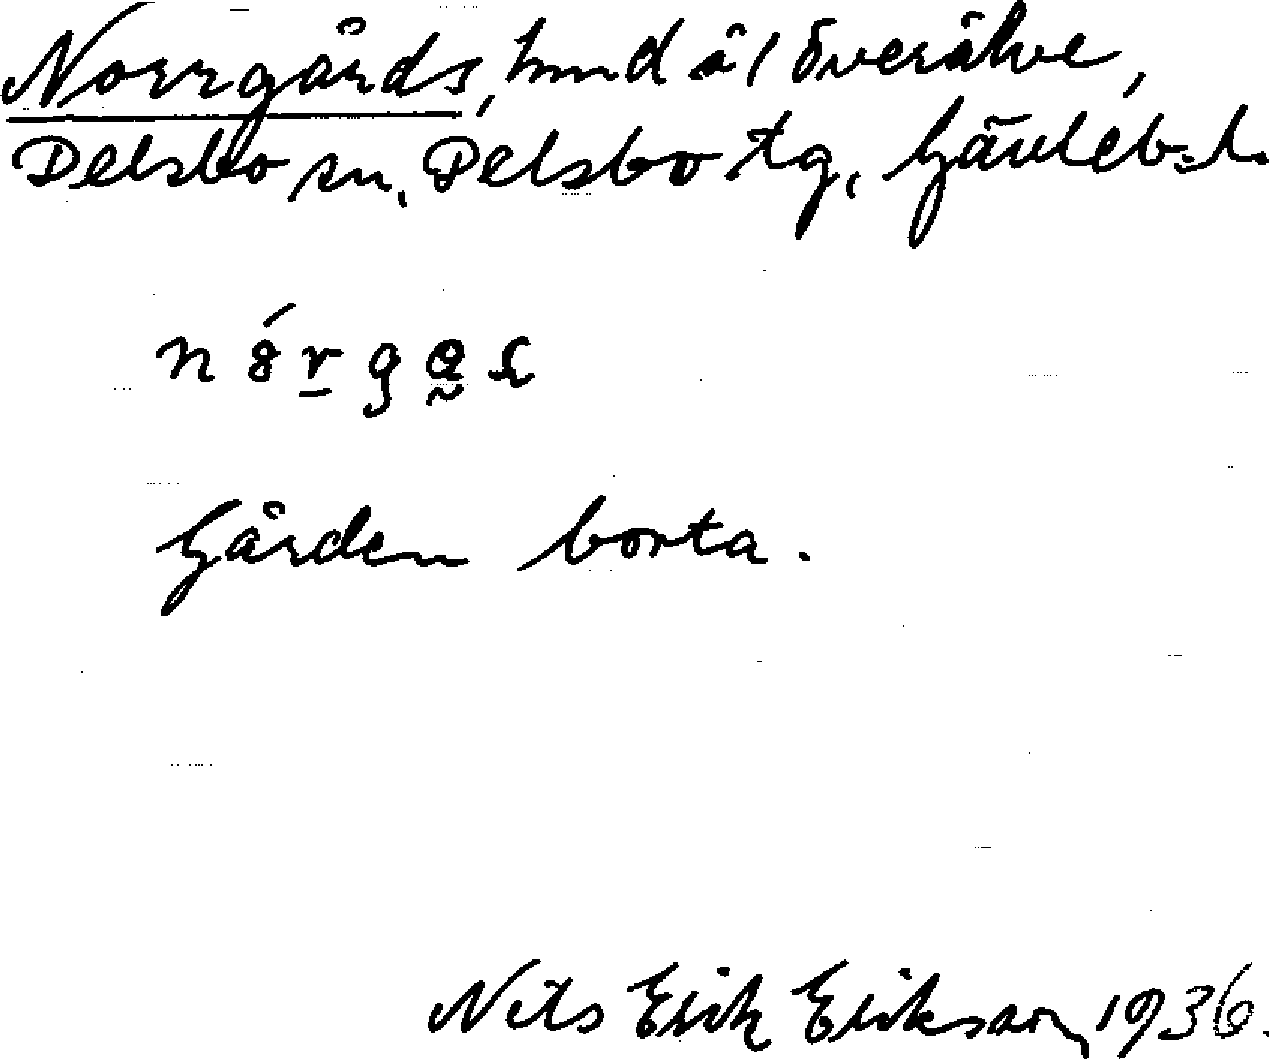 Norrgårds, hmd å 1 Överälve,
Delsbo sn. Delsbo tg, Gävleb. l.
Gården borta.
Nils Erik Erikson, 1936.